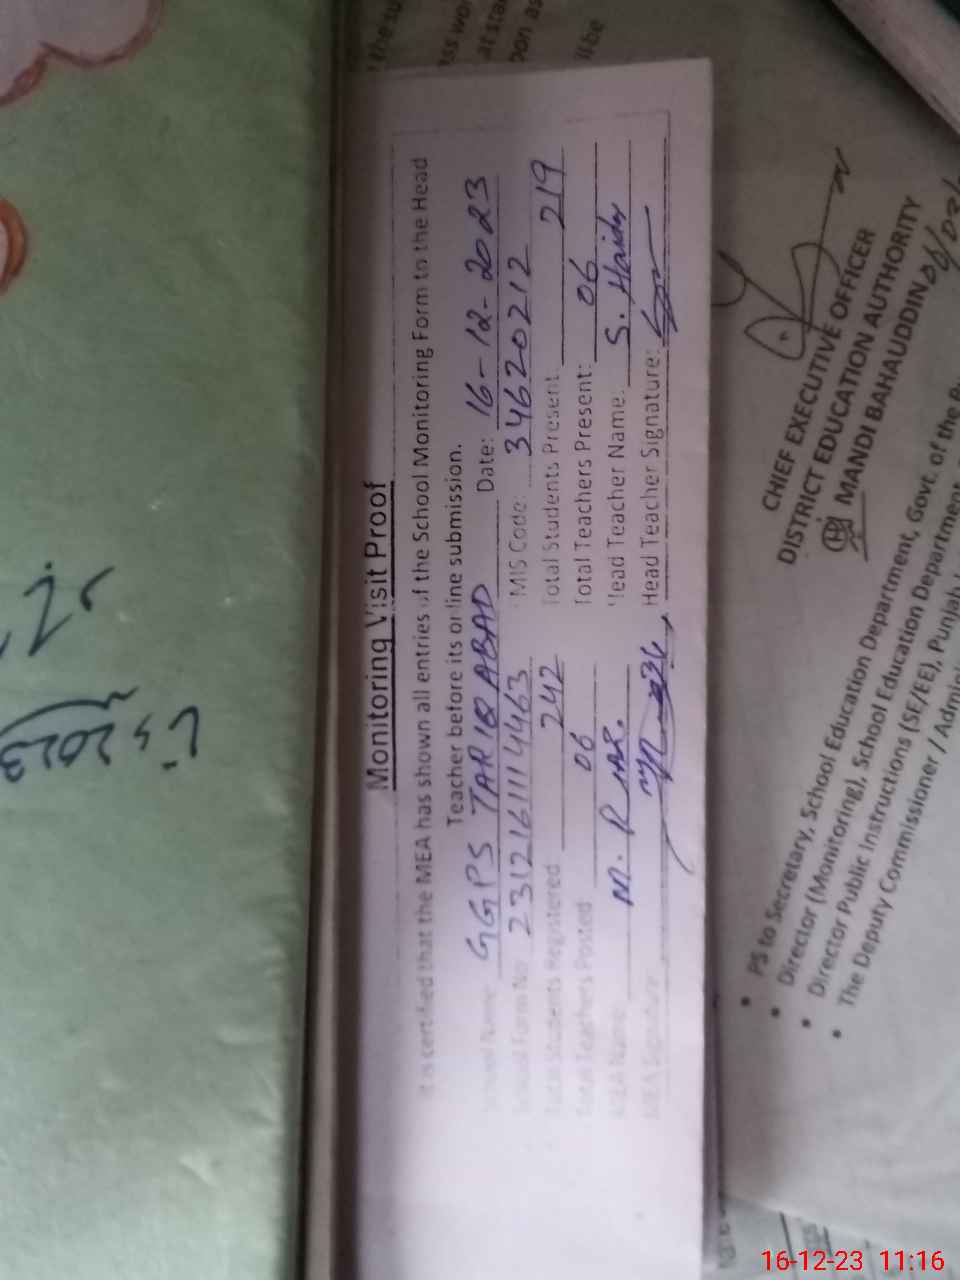 Monitoring Visit Proof
It is certified that the MEA has shown all entries of the School Monitoring Form to the Head
Teacher before its online submission.
School Name: GGPS TARIQ ABAD Date: 16-12-2023
School Form No: 2312161114463 EMIS Code: 34620212
Total Students Registered 242 Total Students Present: 219
Total Teachers Posted 06 Total Teachers Present: 06
MEA Name: M. R Head Teacher Name: S. Haider
MEA Signature Head Teacher Signature:
CHIEF EXECUTIVE OFFICER
DISTRICT EDUCATION AUTHORITY
MANDI BAHAUDDIN
• PS to Secretary, School Education Department, Govt. of the
• Director (Monitoring), School Education Department
• Director Public Instructions (SE/EE), Punjab
• The Deputy Commissioner / Admini
2023
16-12-23 11:16